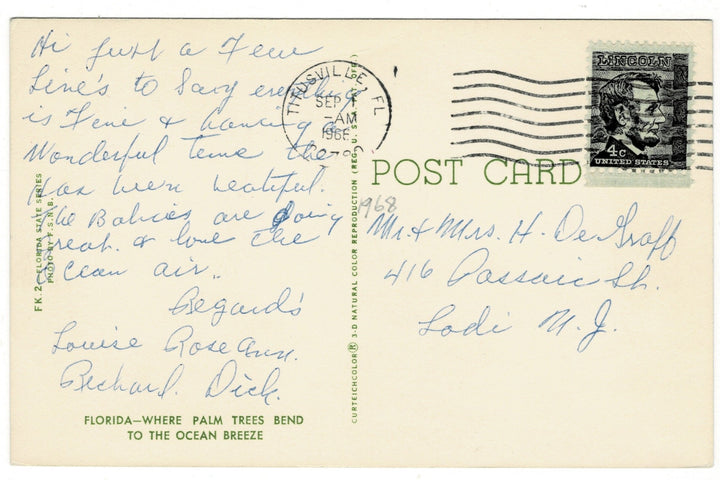 Hi just a Few
Line's to Say everything
is Fine & haveing a
Wonderful time the
has been beatiful.
The Babies are doing
great. & love the
Ocean air..
Regards
Louise RoseAnn.
Richard. Dick.
FLORIDA—WHERE PALM TREES BEND
TO THE OCEAN BREEZE
FK.2—FLORIDA STATE SERIES
PHOTO BY F.S.N.B.
CURTEICHCOLOR® 3-D NATURAL COLOR REPRODUCTION (REG. U.S. PAT. OFF.)
TITUSVILLE, FL
SEP 1
-AM
196
LINCOLN
4c
UNITED STATES
POST CARD
1968
Mr. & Mrs. H. DeGraff
416 Passaic St.
Lodi N.J.